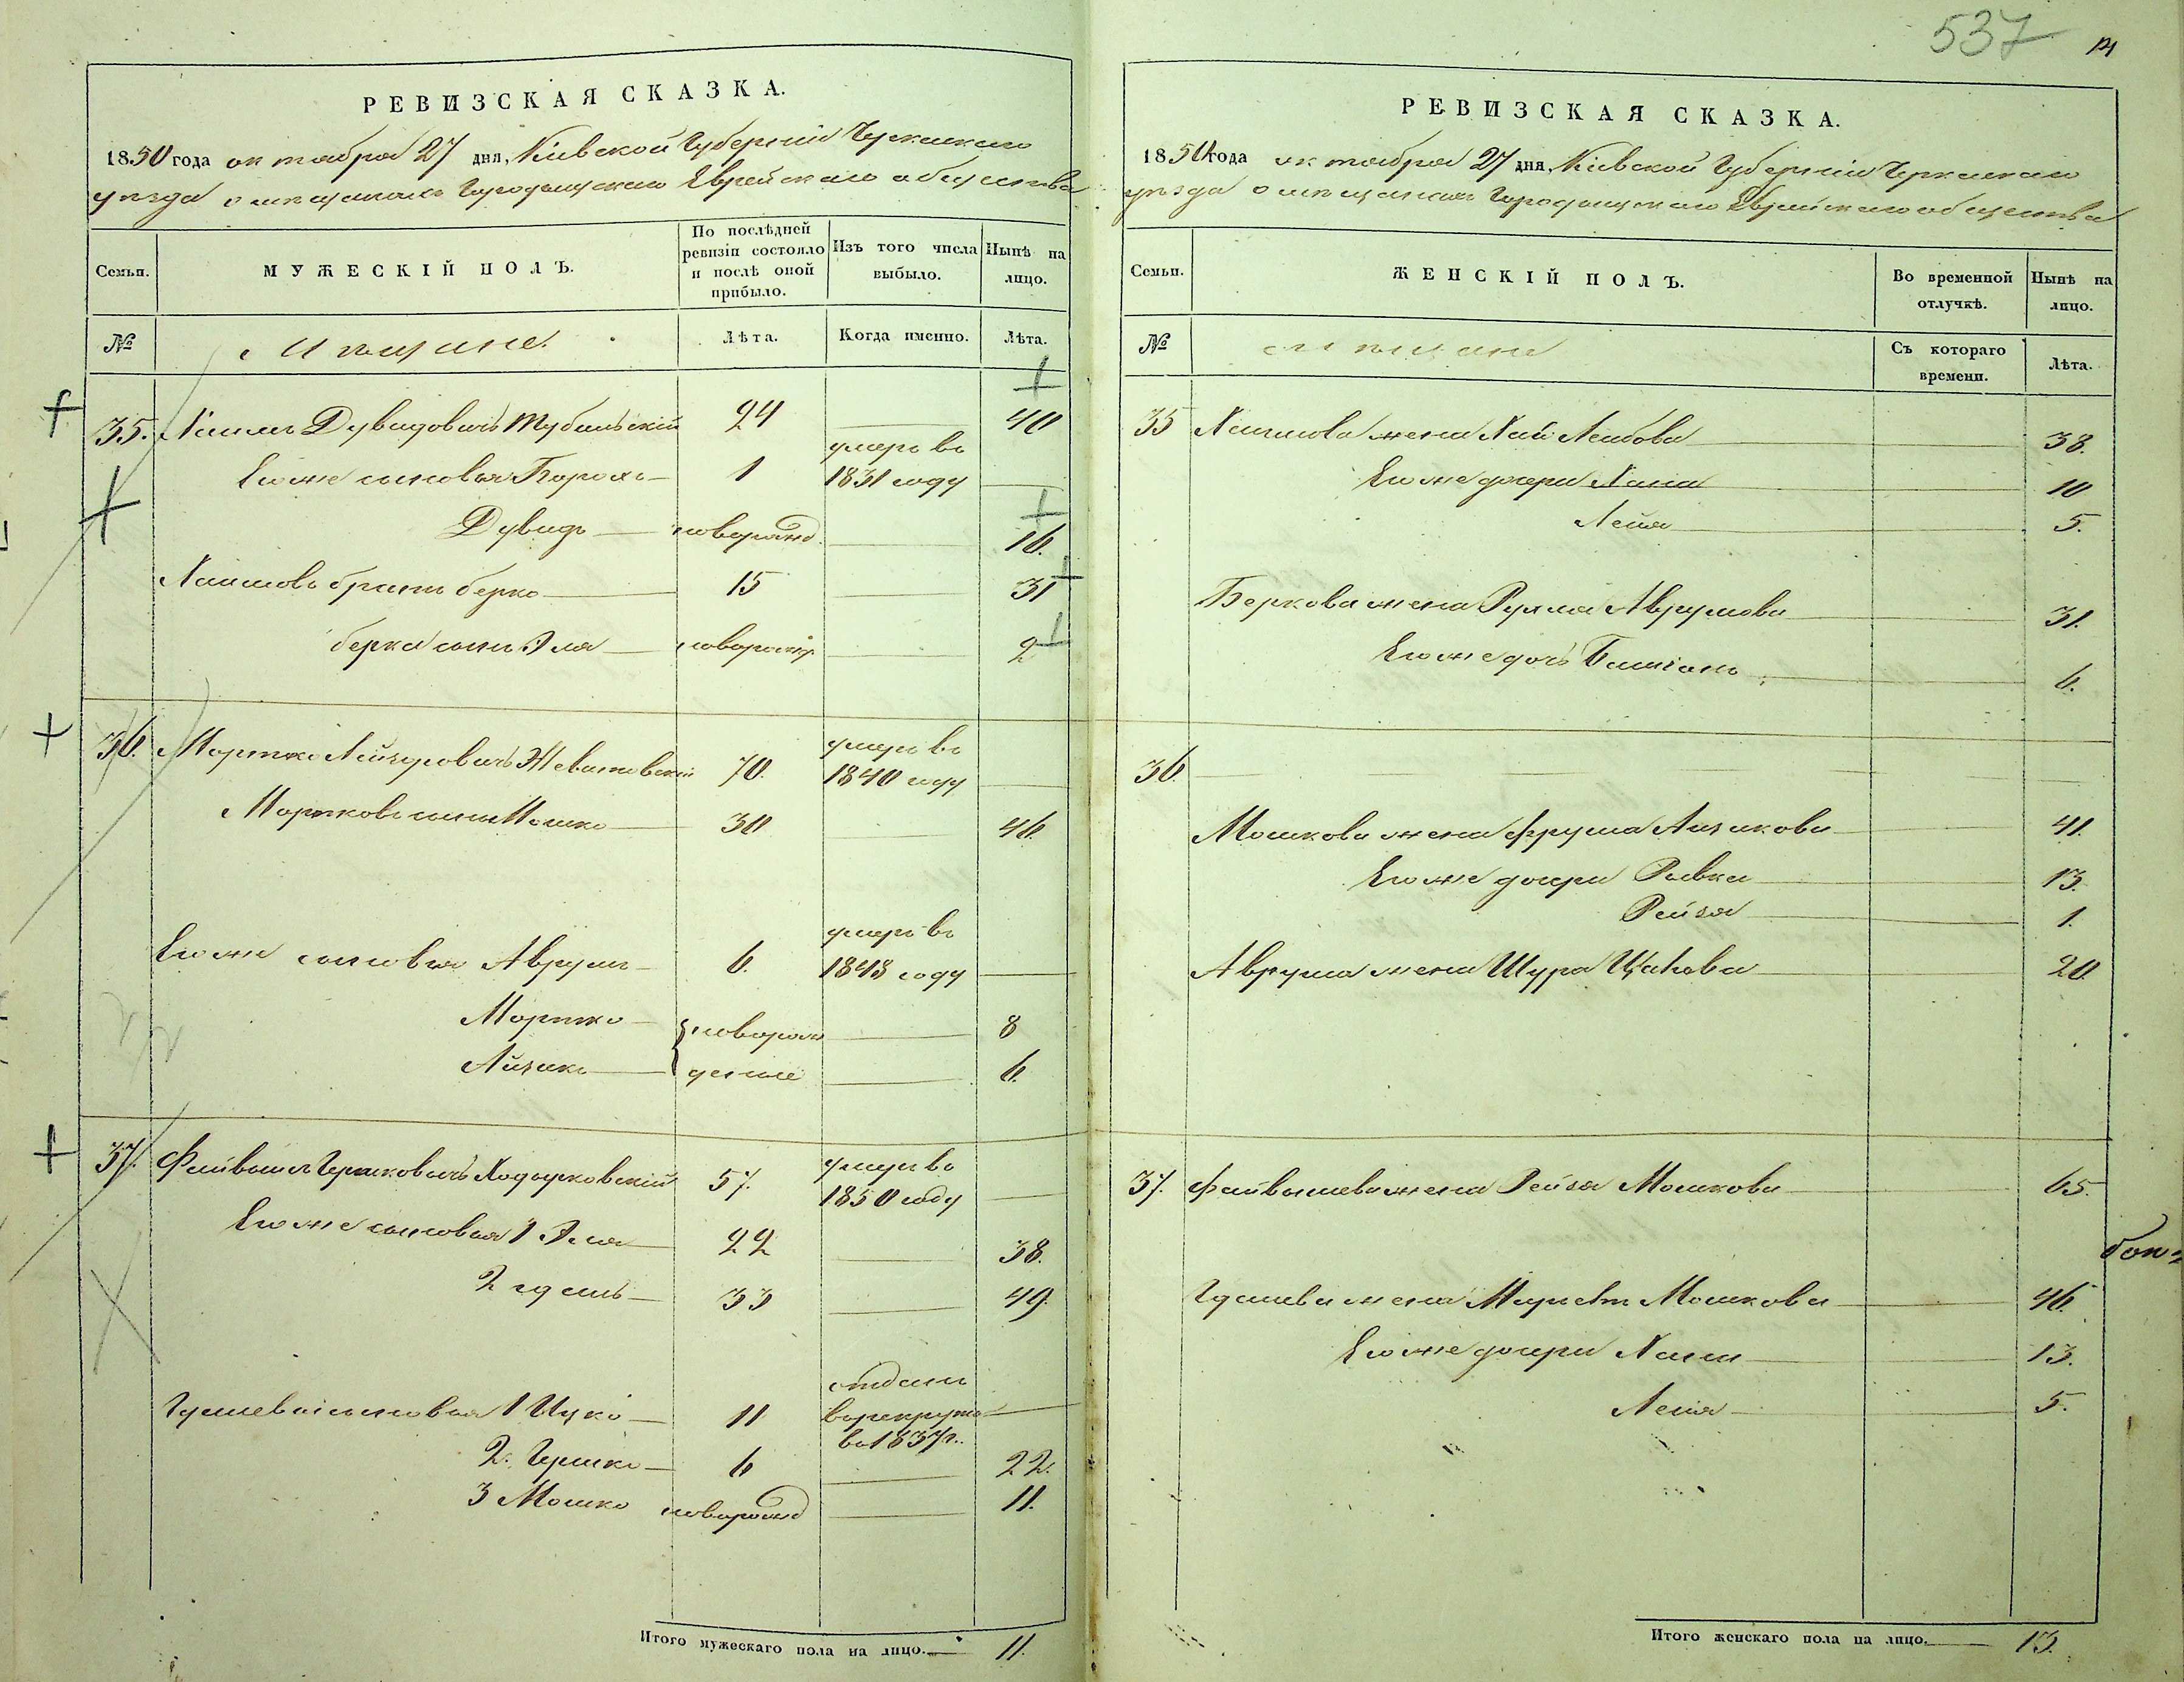 537
РЕВИЗСКАЯ СКАЗКА.
1850 года октября 27 дня, Кіевской Губерніи Черкаскаго
уѣзда о мѣщанахъ Городищскаго Еврейскаго общества
Семьи.
МУЖЕСКІЙ ПОЛЪ.
По послѣдней ревизіи состояло и послѣ оной прибыло.
Изъ того числа выбыло.
Нынѣ на лицо.
№
Мѣщане.
Лѣта.
Когда именно.
Лѣта.
35. Хаимъ Дувидовичъ 24 40
Его же сыновья Борохъ 1 умеръ въ 1831 году
Дувидъ новорожд. 16.
Хаимовъ братъ берко 15 31
берка сынъ Эля новорожд. 2
36. Мортко Лейзеровичъ 70. умеръ въ 1840 году
Мортковъ сынъ Мошко 30 46.
Его же сыновья Аврумъ 6. умеръ въ 1848 году
Мортко новорож 8
Айзикъ денные 6.
37. Файвишъ Гершковичъ Ходорковскій 57. умеръ въ 1850 году
Его же сыновья 1 Эля 22 38.
2 33 49.
сыновья 1 Ицко 11 отданъ въ рекруты въ 1837 г.
2. Гершко 6 22.
3 Мошко новорожд 11.
Итого мужескаго пола на лицо. 11.
РЕВИЗСКАЯ СКАЗКА.
1850 года октября 27 дня, Кіевской Губерніи Черкаскаго
уѣзда о мѣщанахъ Городищскаго Еврейскаго общества
Семьи.
ЖЕНСКІЙ ПОЛЪ.
Во временной отлучкѣ.
Нынѣ на лицо.
№
мѣщане
Съ котораго времени.
Лѣта.
35 Хаимова жена Хая Лейбова 38.
Его же дочери Хана 10
Лея 5.
Беркова жена Рухля Аврумова 31.
Его же дочь 6.
36.
Мошкова жена Фрума Айзикова 41.
Его же дочери Ривка 13.
Рейзя 1.
Аврума жена Шура 20.
37. Файвишева жена Рейзя Мошкова 65.
жена Мошкова 46.
Его же дочери Хана 13.
Лея 5.
Итого женскаго пола на лицо. 13.